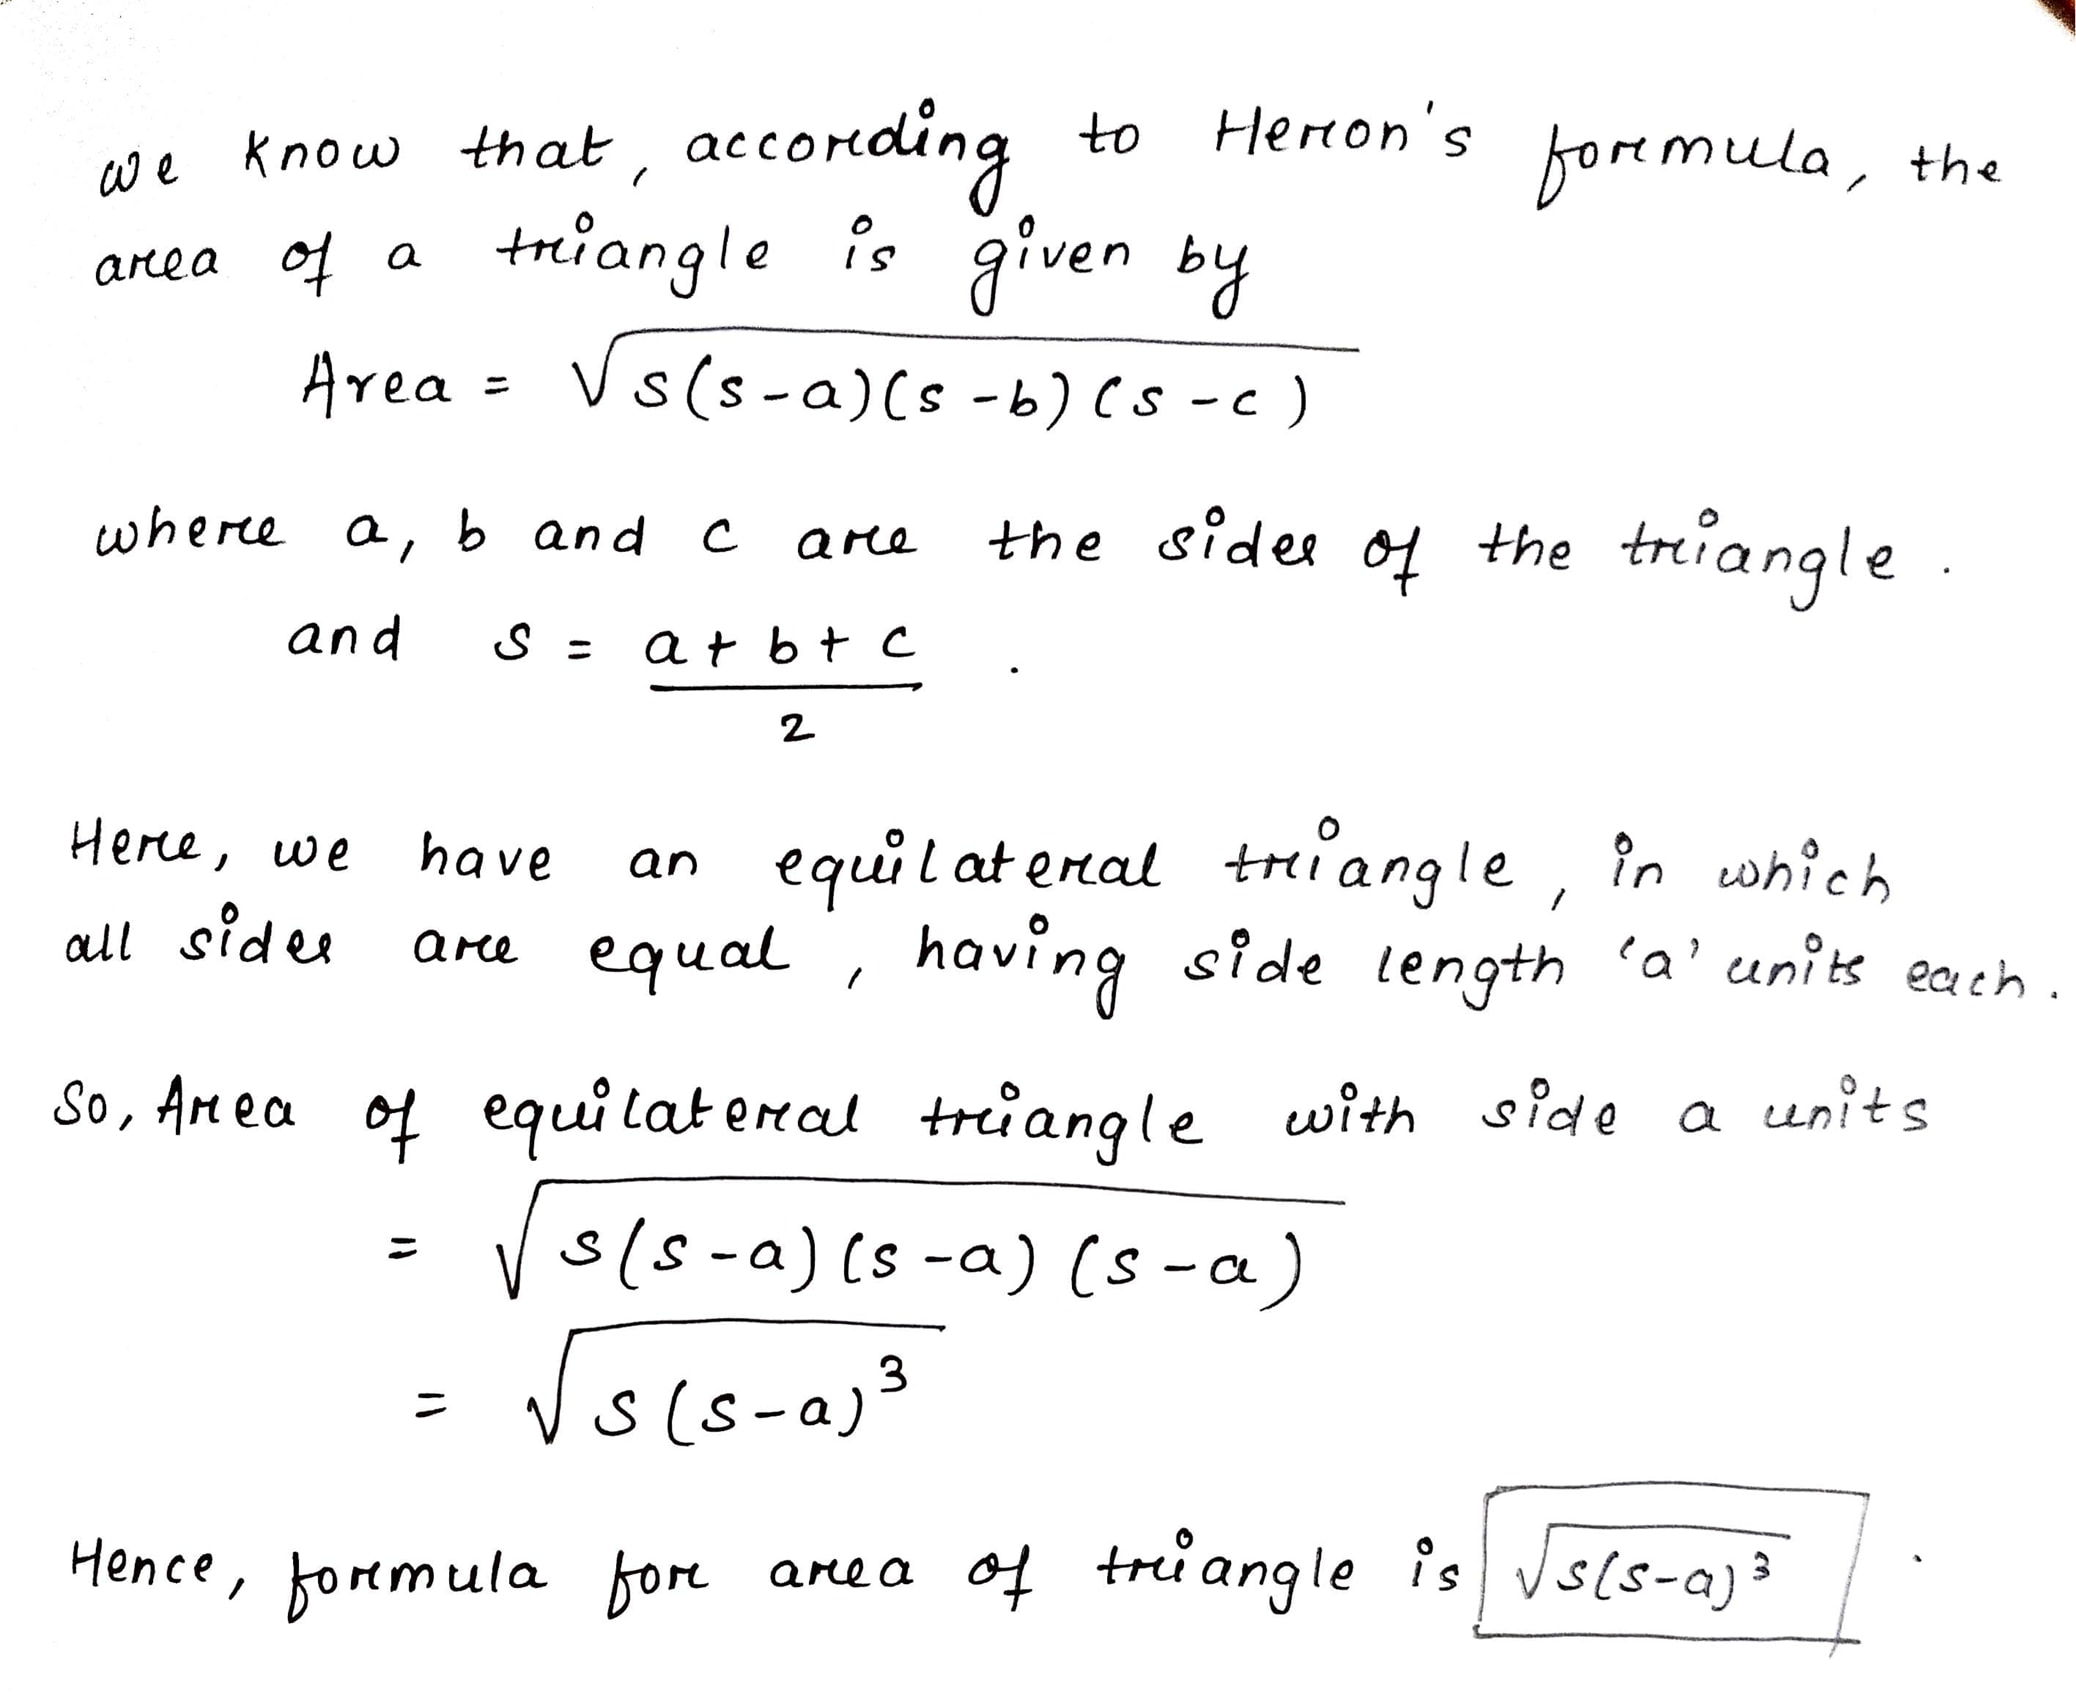 we know that, according to Heron's formula, the
area of a triangle is given by
Area = √s(s-a)(s-b)(s-c)
where a, b and c are the sides of the triangle.
and s = a+b+c/2.
Here, we have an equilateral triangle, in which
all sides are equal, having side length 'a' units each.
So, Area of equilateral triangle with side a units
= √s(s-a)(s-a)(s-a)
= √s(s-a)³
Hence, formula for area of triangle is √s(s-a)³.